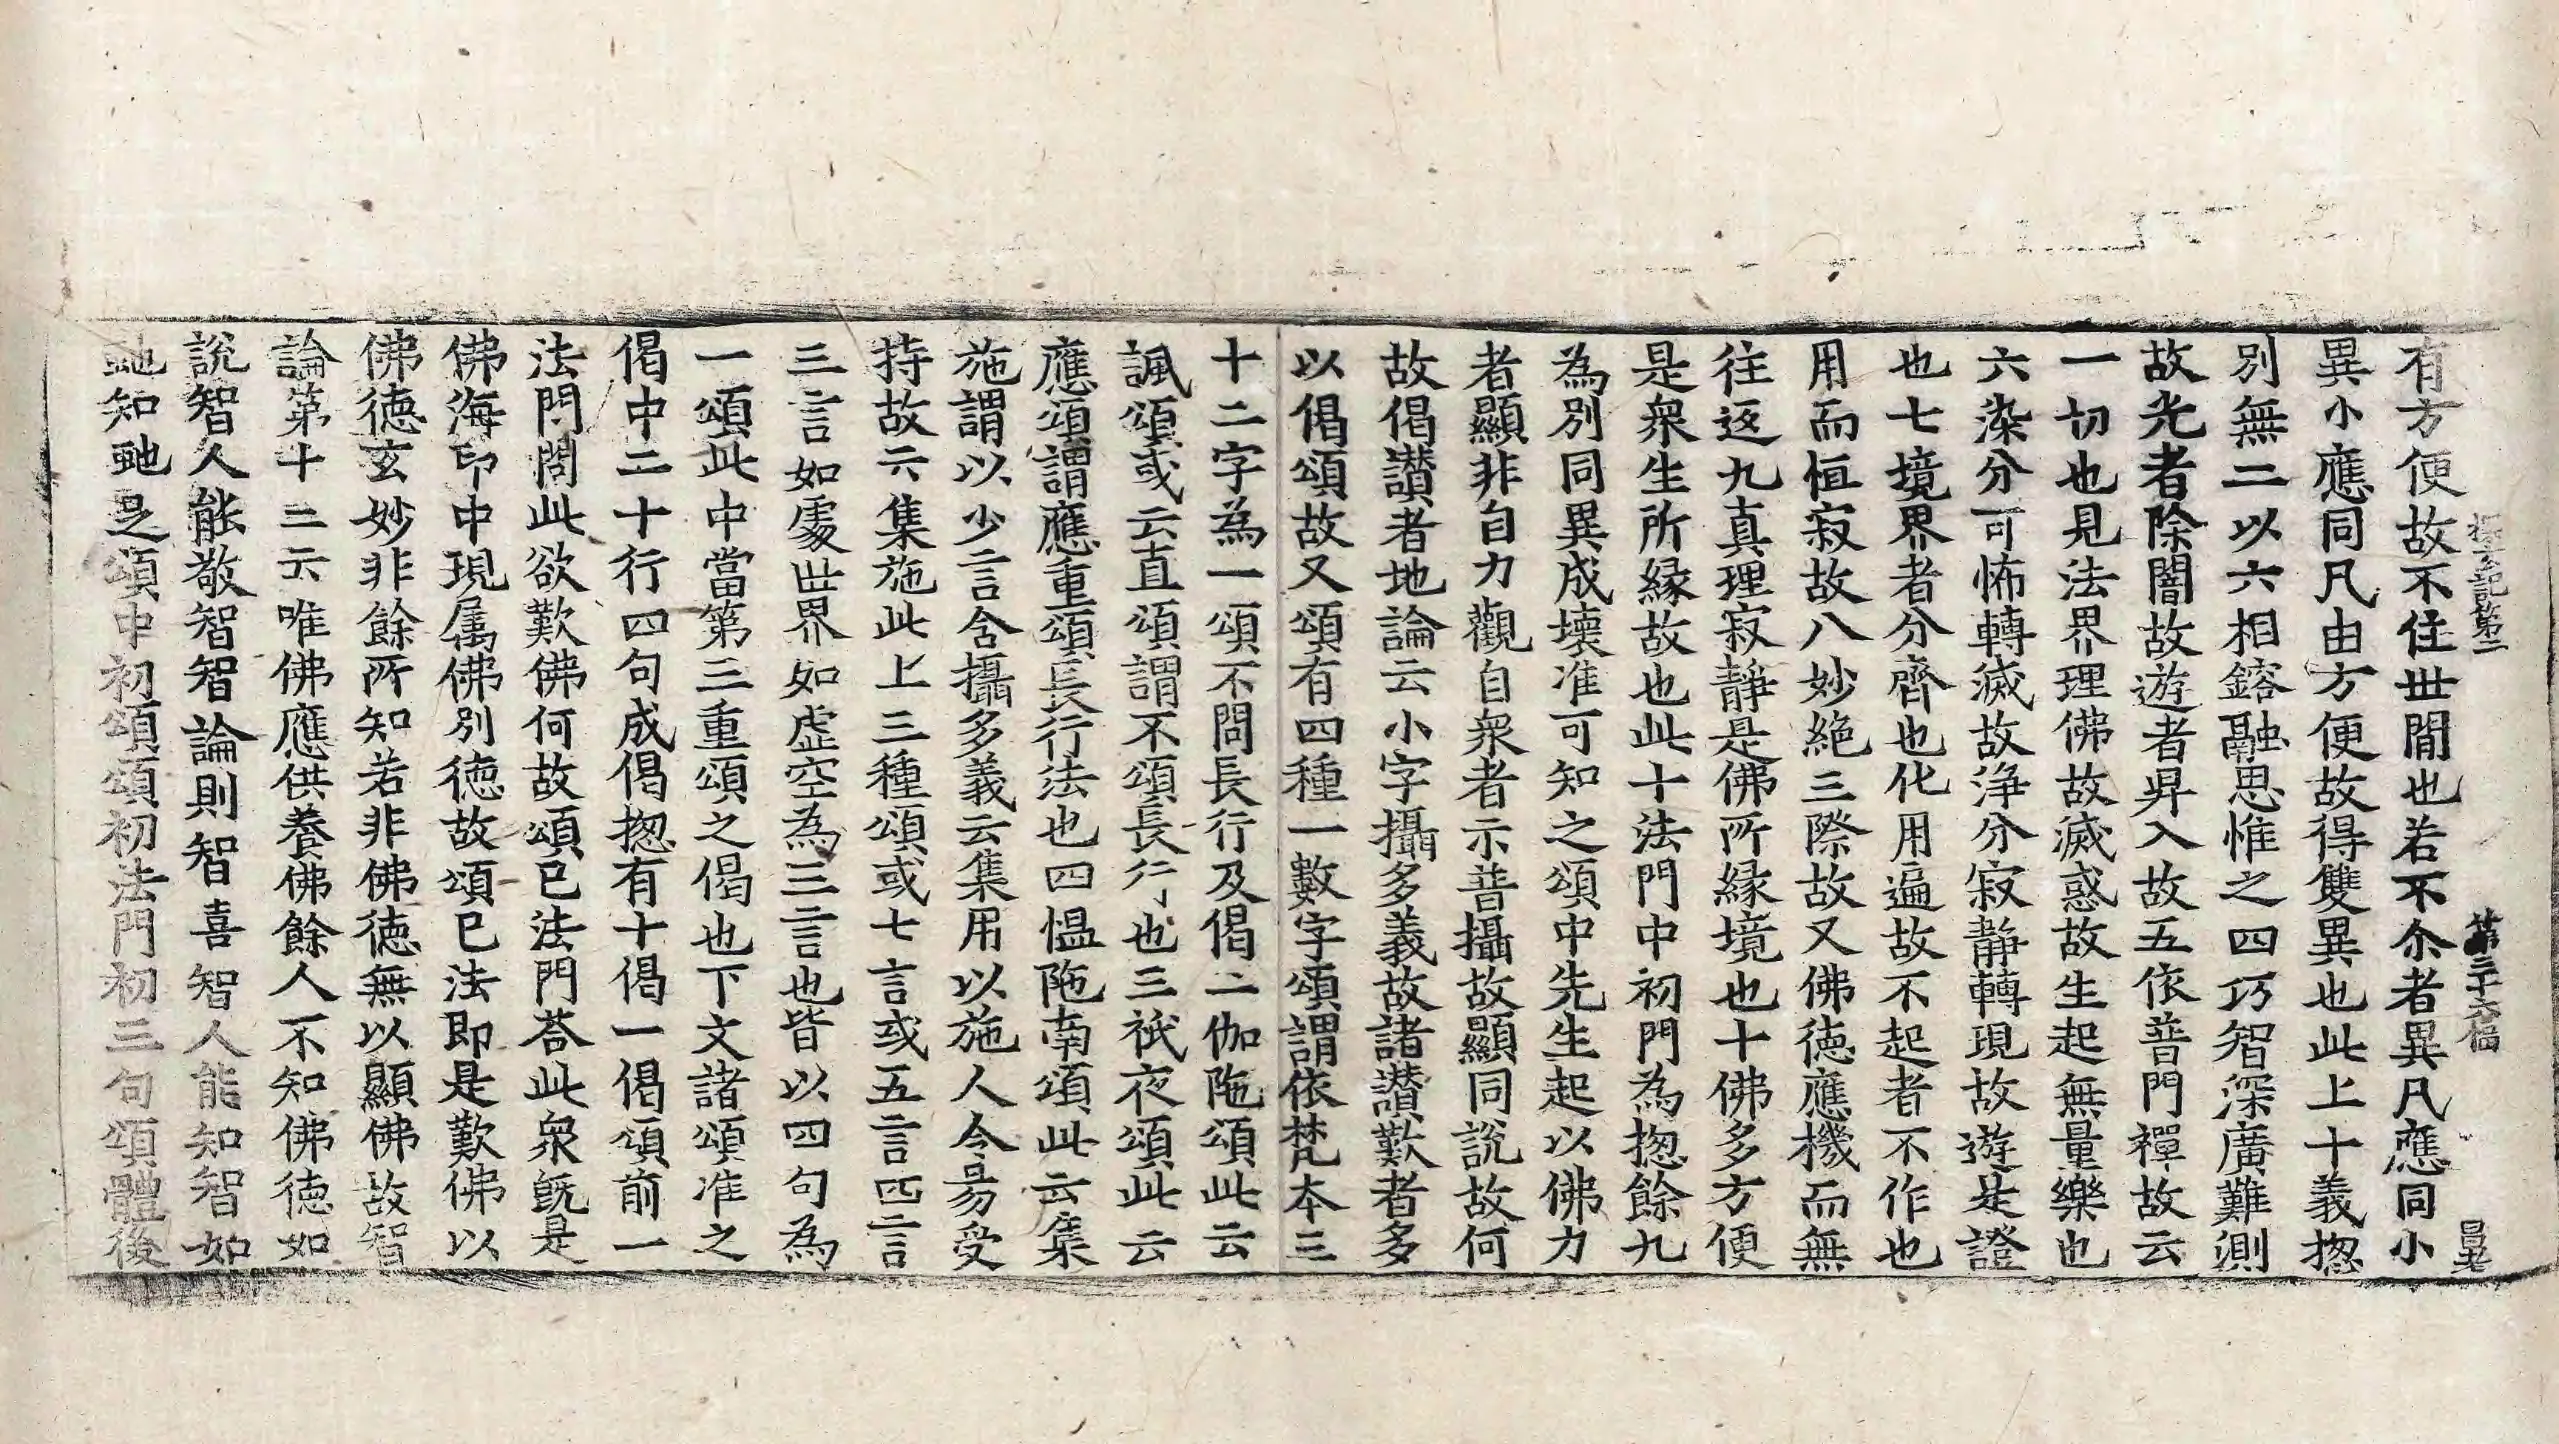 探玄記第二　第三十六幅　昌老
有方便故不住世間也若不尒者異凡應同小
異小應同凡由方便故得雙異也此上十義揔
別無二以六相鎔融思惟之四巧智深廣難測
故光者除闇故遊者昇入故五依普門禪故云
一切也見法界理佛故滅惑故生起無量樂也
六染分可怖轉滅故淨分寂靜轉現故遊是證
也七境界者分齊也化用遍故不起者不作也
用而恒寂故八妙絶三際故又佛德應機而無
往返九真理寂靜是佛所緣境也十佛多方便
是衆生所緣故也此十法門中初門為揔餘九
為別同異成壞准可知之頌中先生起以佛力
者顯非自力觀自衆者示普攝故顯同說故何
故偈讃者地論云小字攝多義故諸讃歎者多
以偈頌故又頌有四種一數字頌謂依梵本三
十二字為一頌不問長行及偈二伽陁頌此云
諷頌或云直頌謂不頌長行也三祇夜頌此云
應頌謂應重頌長行法也四愠陁南頌此云集
施謂以少言含攝多義云集用以施人令昜受
持故六集施此上三種頌或七言或五言四言
三言如處世界如虛空為三言也皆以四句為
一頌此中當第三重頌之偈也下文諸頌准之
偈中二十行四句成偈揔有十偈一偈頌前一
法門問此欲歎佛何故頌已法門荅此衆旣是
佛海印中現属佛別德故頌已法即是歎佛以
佛德玄妙非餘所知若非佛德無以顯佛故智
論第十二云唯佛應供養佛餘人不知佛德如
說智人能敬智智論則智喜智人能知智如
虵知虵足頌中初頌頌初法門初三句頌體後